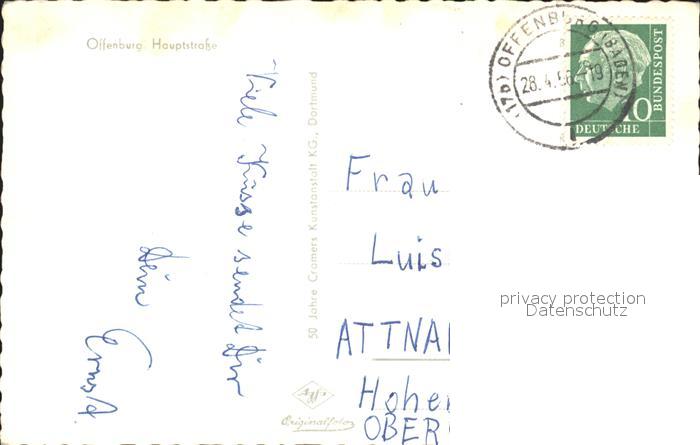 Offenburg. Hauptstraße
Viele Küsse sendet Dir
Dein
Ernst.
50 Jahre Cramers Kunstanstalt KG., Dortmund
Agfa
Originalfoto
(17b) OFFENBURG (BADEN)
28.4.58-19
10
DEUTSCHE
BUNDESPOST
Frau
Luis
ATTNA
Hohe
OBER
privacy protection
Datenschutz